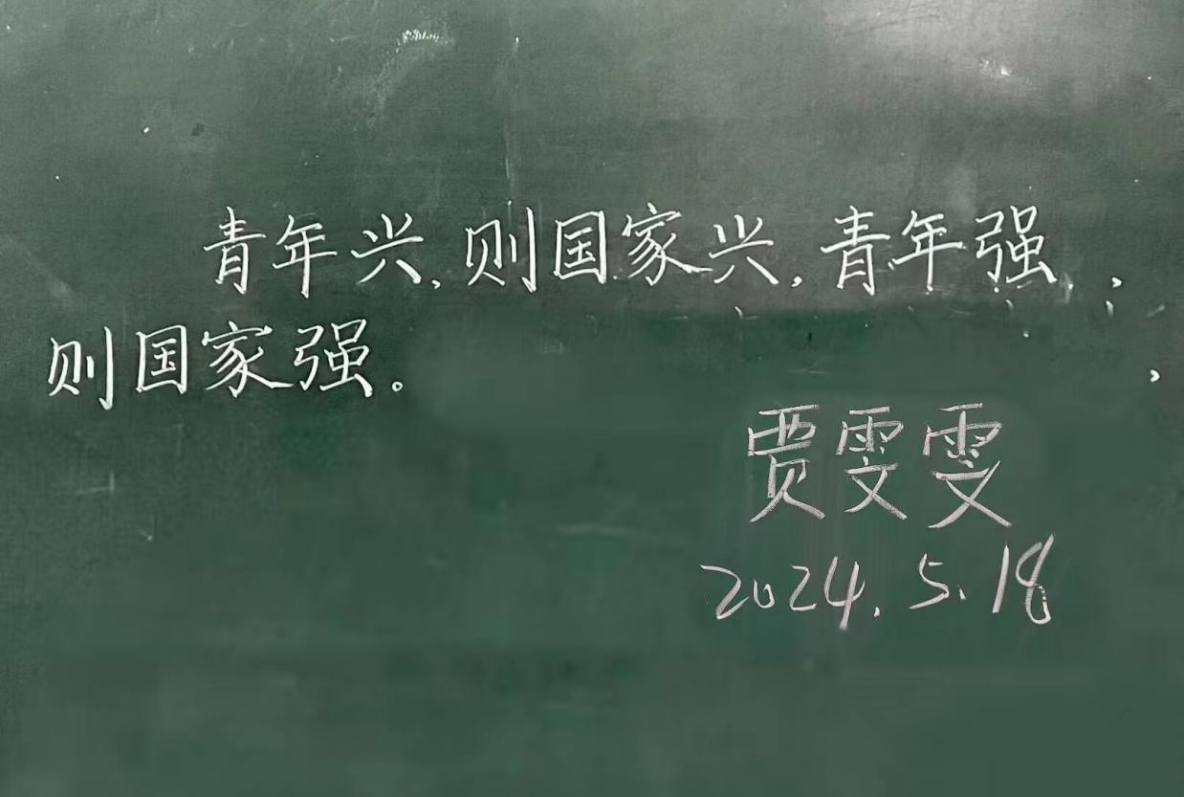 青年兴,则国家兴,青年强,
则国家强。
贾雯雯
2024.5.18